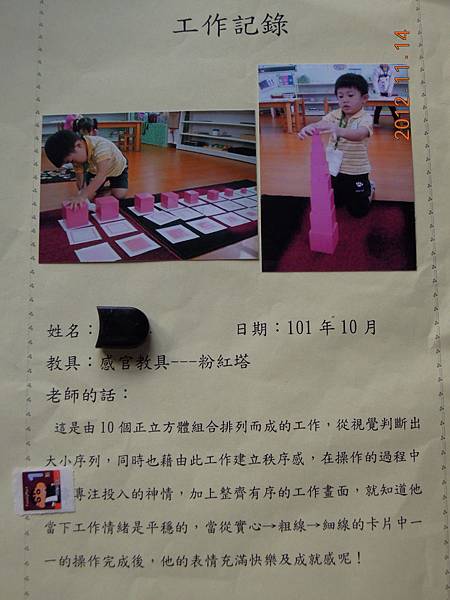 工作記錄
2012.11.14
姓名：
日期：101年10月
教具：感官教具---粉紅塔
老師的話：
這是由10個正立方體組合排列而成的工作，從視覺判斷出
大小序列，同時也藉由此工作建立秩序感，在操作的過程中
專注投入的神情，加上整齊有序的工作畫面，就知道他
當下工作情緒是平穩的，當從實心→粗線→細線的卡片中一
一的操作完成後，他的表情充滿快樂及成就感呢！